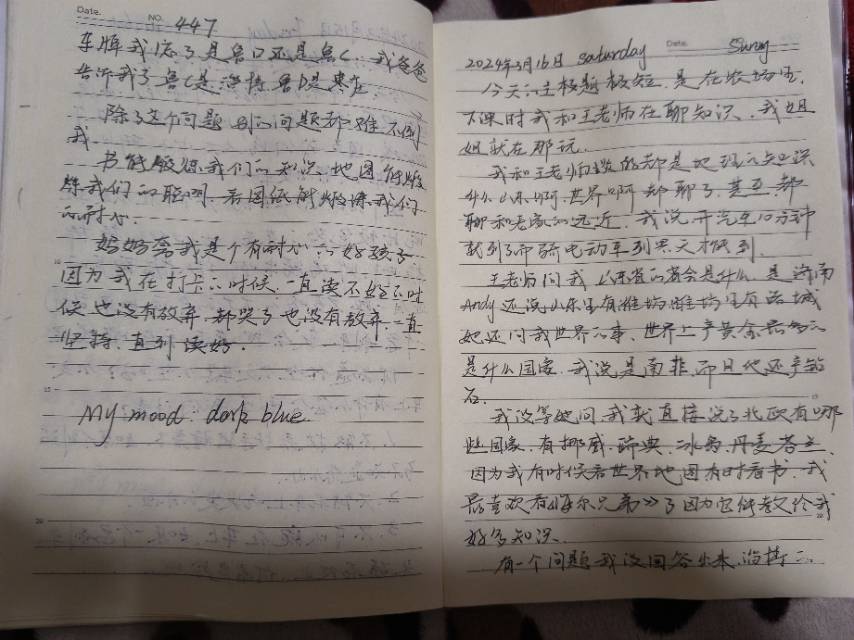 Date.
NO. 447
车牌我忘了是鲁D还是鲁C 我爸爸
告诉我了鲁C是淄博 鲁D是枣庄
除了这个问题 别的问题都难不倒
我.
书能锻炼我们的知识 地图能锻
炼我们的 看图纸能锻炼我们
的耐心.
妈妈 我是个有耐心的好孩子
因为我在打卡的时候 一直读不好的时
候也没有放弃 都哭了也没有放弃一直
坚持 直到读好.
My mood: dark blue.
2024年3月16日 saturday Date. Sunny
今天的主题 是在农场里,
下课时我和王老师在聊知识, 我姐
姐就在那玩.
我和王老师聊的都是地理的知识
什么山东啊 世界啊 都聊了 甚至 都
聊和老家的远近, 我说开汽车10分钟
就到了而骑电动车到 天才能到.
王老师问我 山东省的省会是什么 是济南
Andy还说山东里有潍坊 潍坊里有 城
她还问我世界的事, 世界上产黄金最多的
是什么国家, 我说是南非 而且他还产钻
石.
我没等她问 我就直接说了北欧有哪
些国家, 有挪威 瑞典 冰岛 丹麦
因为我有时候看世界地图有时看书, 我
最喜欢看 尔兄弟》了因为它能教给我
好多知识.
有一个问题我没回答出来, 淄博的